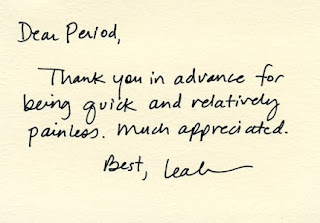 Dear Period,
Thank you in advance for
being quick and relatively
painless. Much appreciated.
Best, Leah